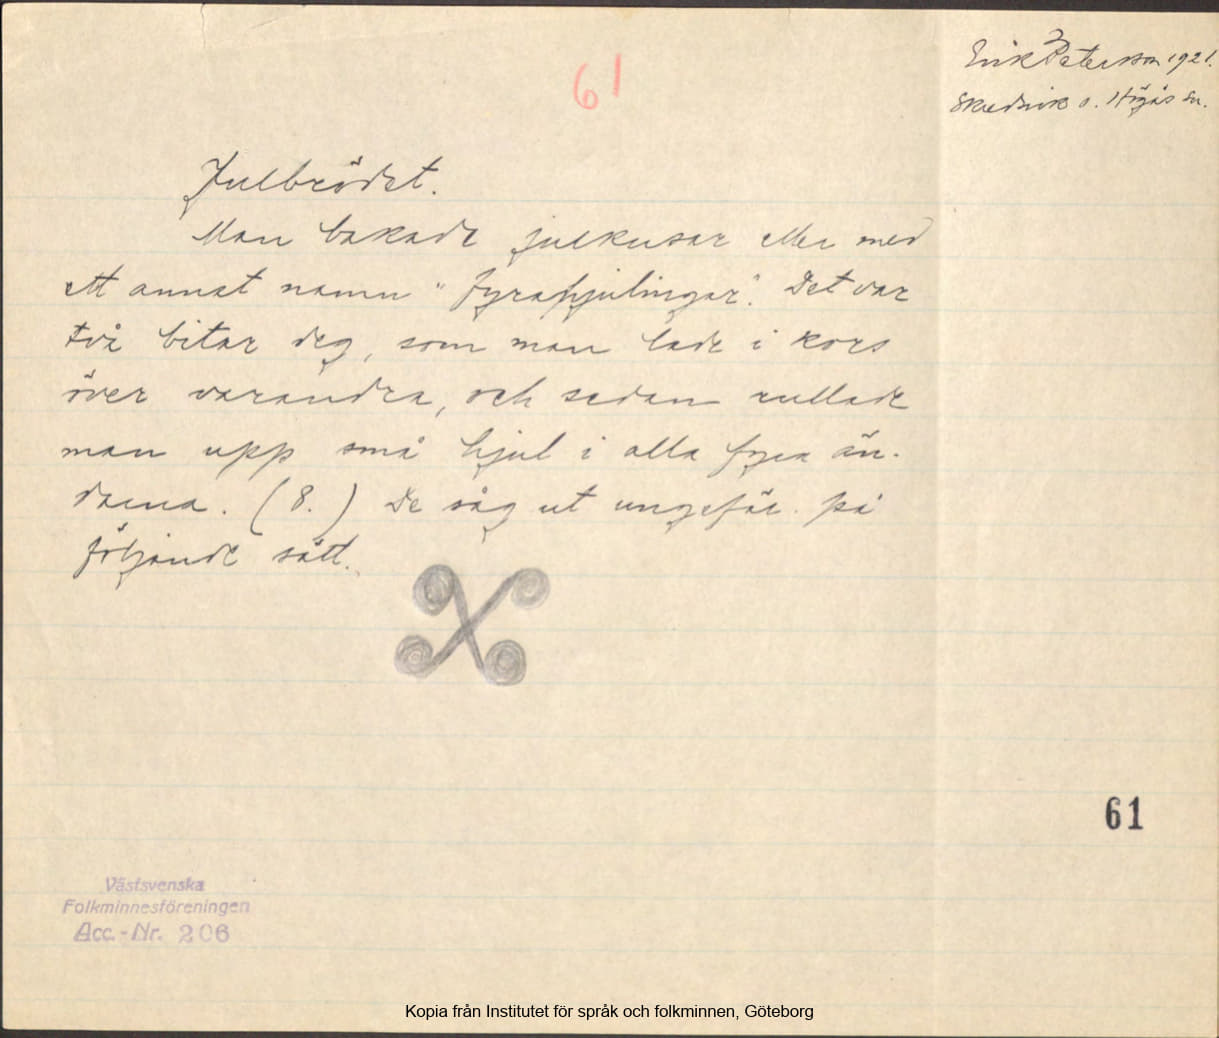 61
Erik Peterson 1921.
Skredsvik o. Högås sn.
Julbrödet.
Man bakade julkusar eller med
ett annat namn "fyrahjulingar". Det var
två bitar deg, som man lade i kors
över varandra, och sedan rullade
man upp små hjul i alla fyra än-
darna. (8.) De såg ut ungefär på
följande sätt.
61
Västsvenska
Folkminnesföreningen
Acc.-Nr. 206
Kopia från Institutet för språk och folkminnen, Göteborg